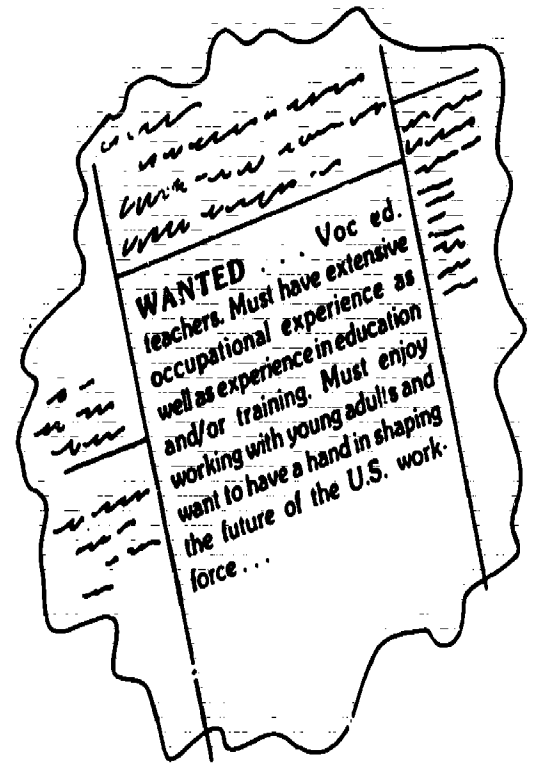 WANTED . . . Voc ed.
teachers. Must have extensive
occupational experience as
well as experience in education
and/or training. Must enjoy
working with young adults and
want to have a hand in shaping
the future of the U.S. work-
force . . .